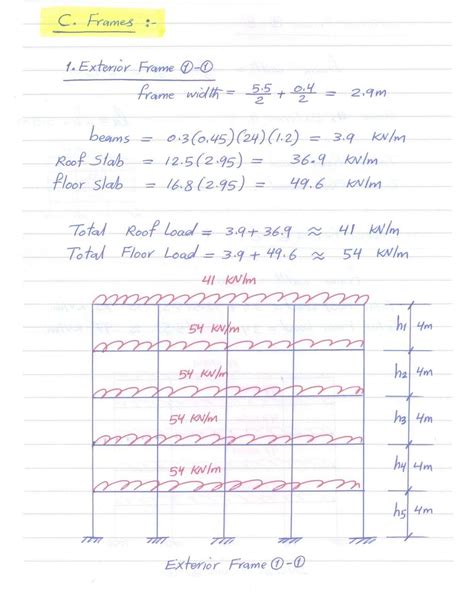 C. Frames :-
1. Exterior Frame ①-①
frame width = 5.5/2 + 0.4/2 = 2.9m
beams = 0.3(0.45)(24)(1.2) = 3.9 KN/m
Roof Slab = 12.5(2.95) = 36.9 KN/m
floor slab = 16.8(2.95) = 49.6 KN/m
Total Roof Load = 3.9 + 36.9 ≈ 41 KN/m
Total Floor Load = 3.9 + 49.6 ≈ 54 KN/m
41 KN/m
54 KN/m h1 4m
54 KN/m h2 4m
54 KN/m h3 4m
54 KN/m h4 4m
h5 4m
Exterior Frame ①-①